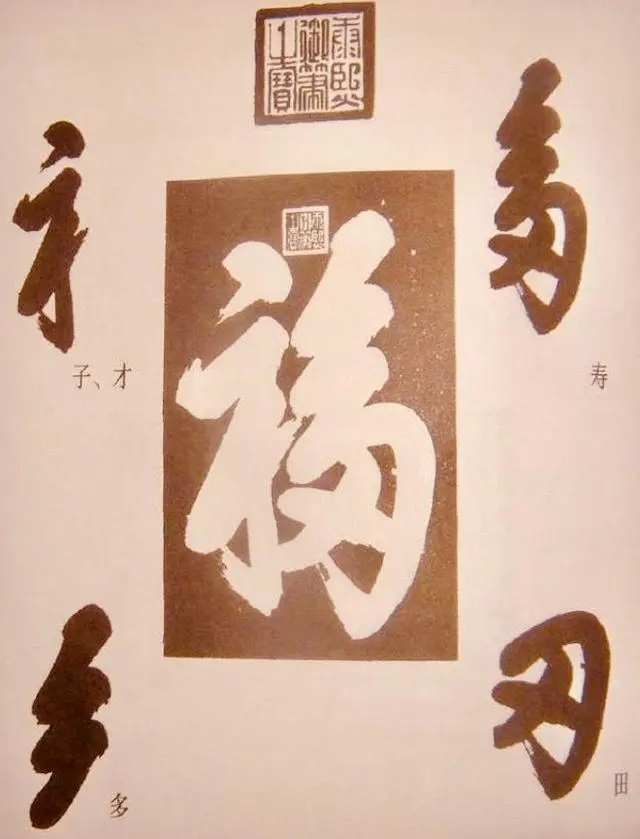 康熙
御筆
之寶
康熙
御筆
之寶
福
子、才
寿
多
田